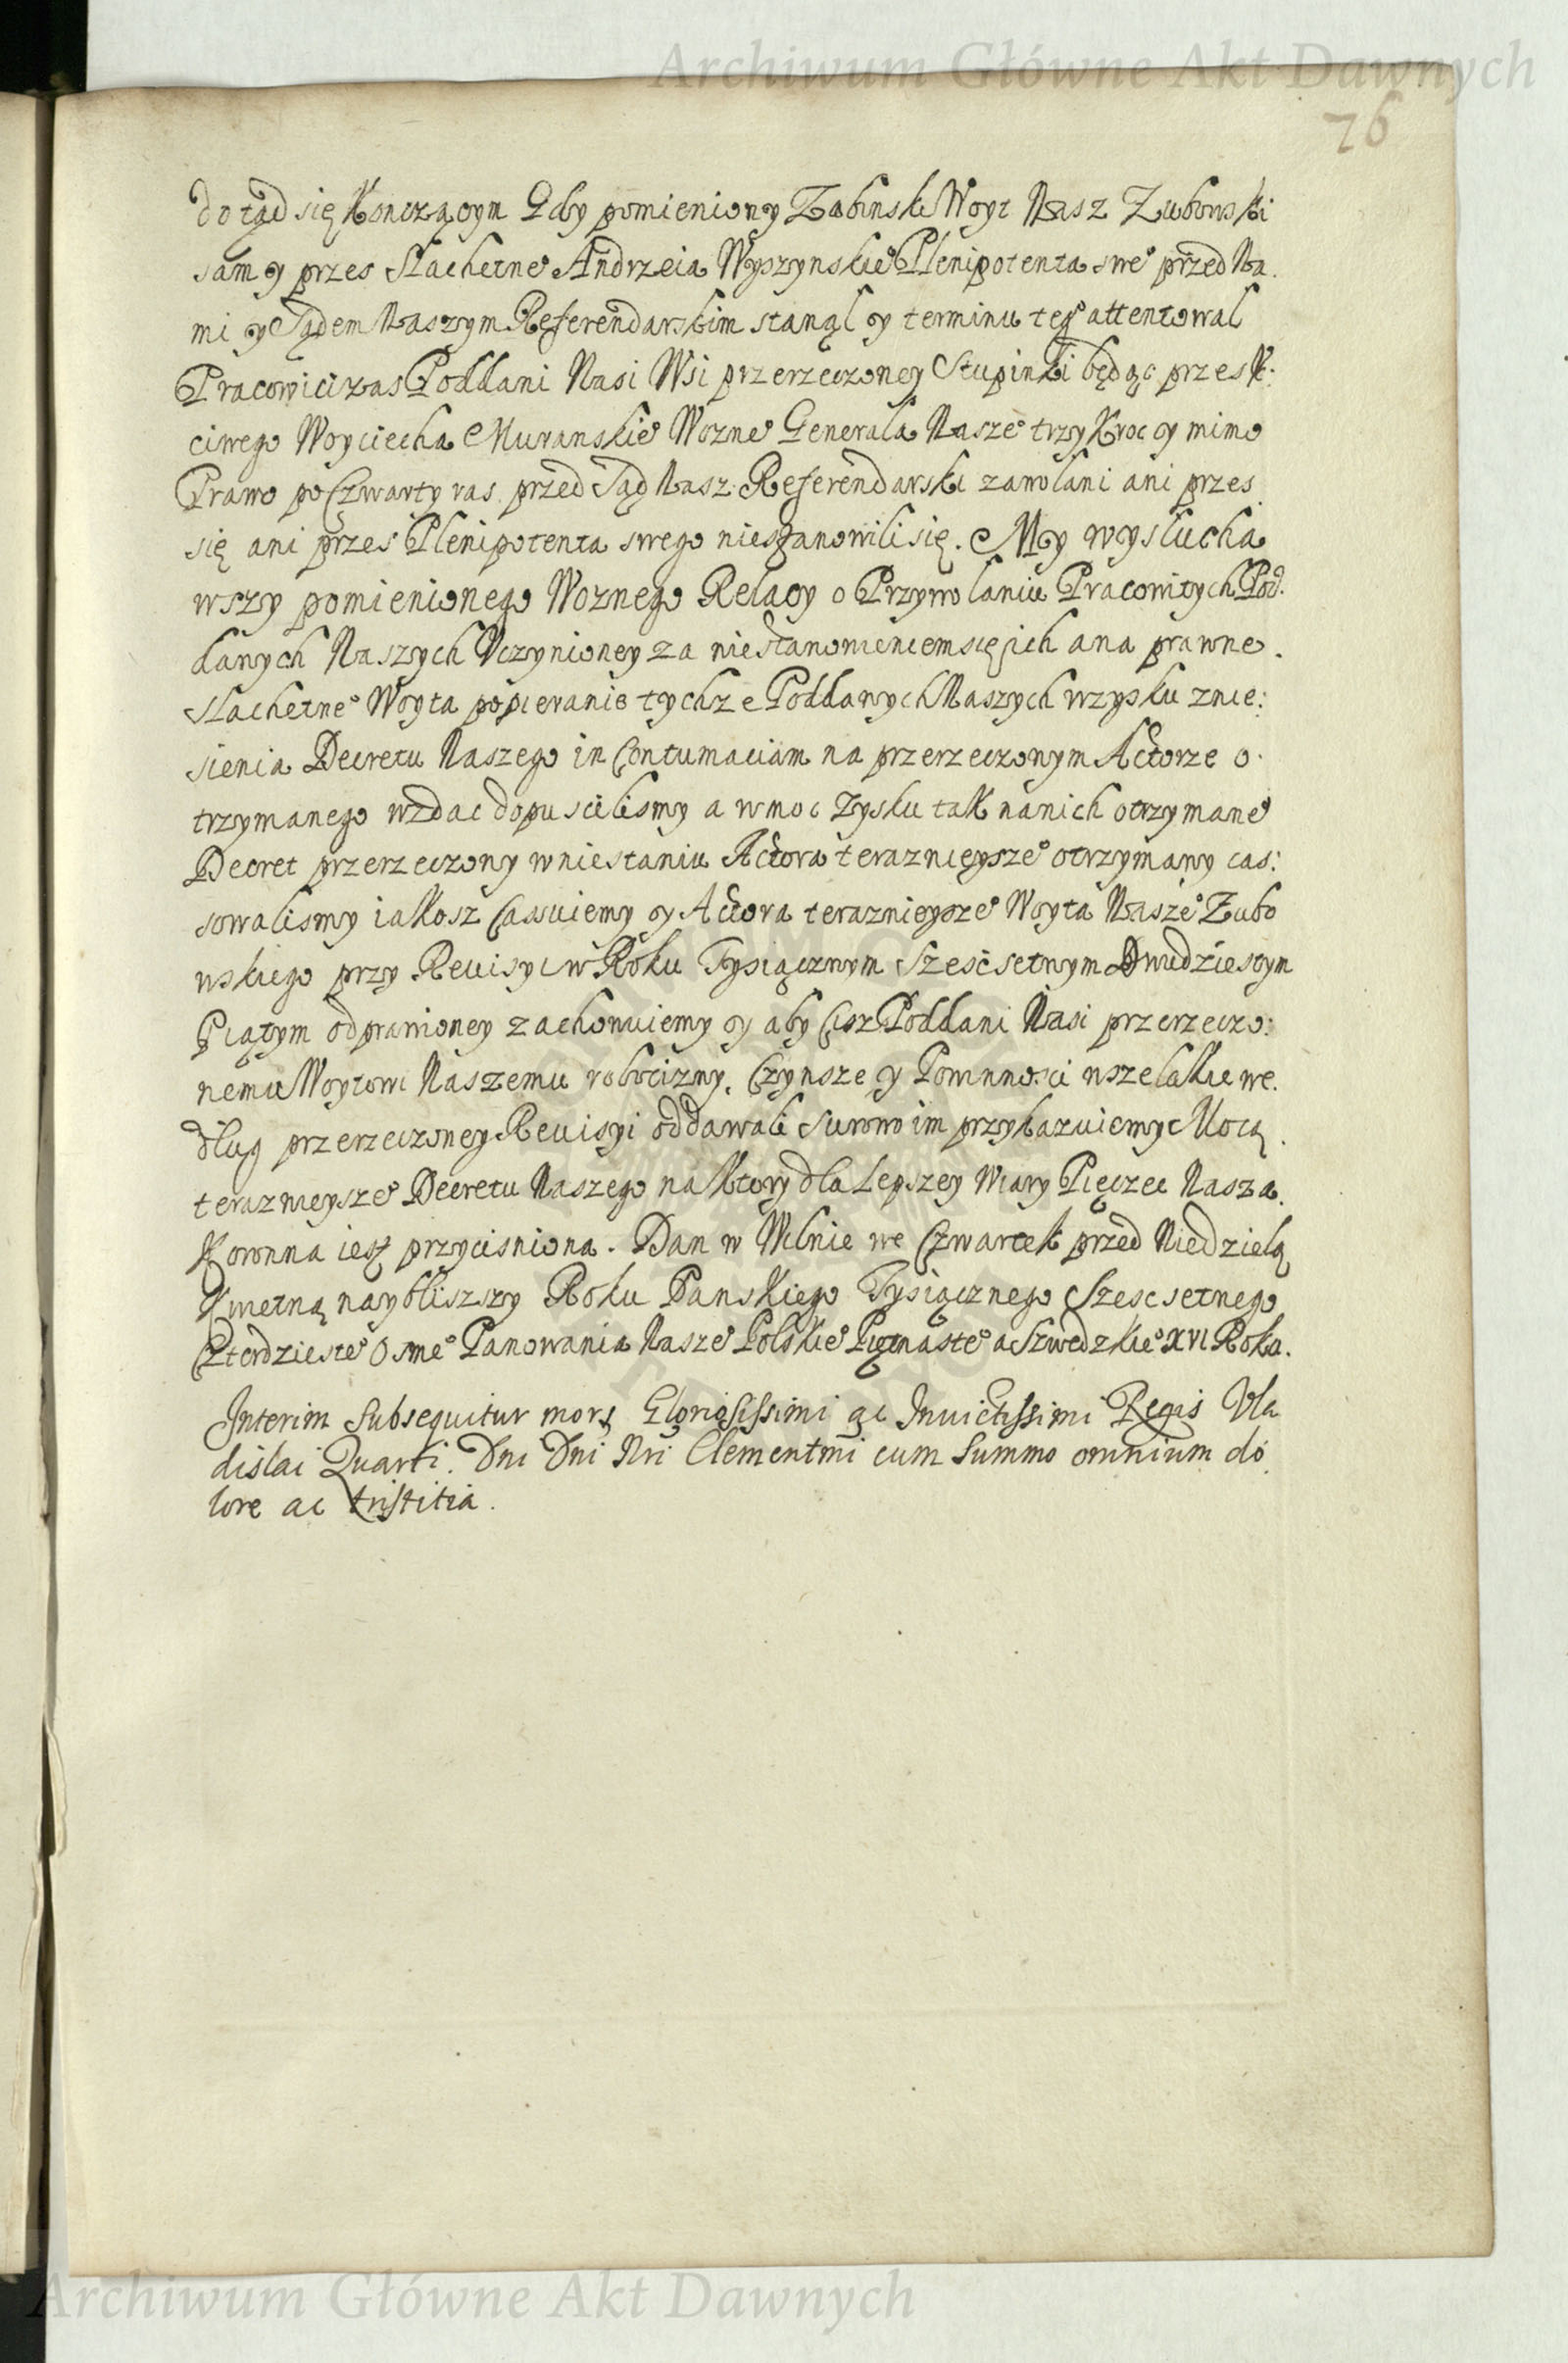 Archiwum Główne Akt Dawnych
76
dotąd się Konczącym Gdy pomieniony Zabinski Woyt Nasz Zubowski
sam y przes Slachetne° Andrzeia Wyszynskie° Plenipotenta swe° przed Na.
mi y Sądem Naszym Referendarskim stanąl y terminu teg° attentowal
Pracowici zas Poddani Nasi Wsi przerzeczoney Stupinki będąc przes
ciwego Woyciecha Muranskie° Wozne° Generala Nasze° trzy Kroc y mimo
Prawo po Czwarty ras przed Sąd Nasz Referendarski zawolani ani przes
się ani przes Plenipotenta swego niestanowili się. My wyslucha
wszy pomienionego Woznego Relacy o Przywolaniu Pracowitych Pod.
danych Naszych Vczynioney za niestanowieniem się ich a na prawne.
Slachetne° Woyta popieranie tychze Poddanych Naszych wzysku znie:
sienia Decretu Naszego in Contumaciam na przerzeczonym Actorze o.
trzymanego wzdac dopuscilismy a w moc Zysku tak na nich otrzymane°
Decret przerzeczony w niestaniu Actora terazniejsze° otrzymany cas:
sowalismy iakosz Cassuiemy y Actora teraznieysze° Woyta Nasze° Zubo
wskiego przy Reuisyi w Roku Tysiącznym Szescsetnym Dwudziestym
Piątym odprawioney zachowuiemy y aby Cisz Poddani Nasi przerzeczo:
nemu Woytowi Naszemu robocizny, Czynsze y Powinnosci wszelakie we.
dlug przerzeczoney Reuisyi oddawali Surowo im przykazuiemy Mocą.
teraznieysze° Decretu Naszego na Ktory dla Lepszey Wiary Pieczec Nasza.
Koronna iest przycisniona. Dan w Wilnie we Czwartek przed Niedzielą
Kwietną nayblizszy Roku Panskiego Tysiącznego Szescsetnego
Czterdzieste° Osme° Panowania Nasze° Polskie° Piętnaste° a Szwedzkie° XVI Roku.
Interim Subsequitur mors Gloriosissimi ac Inuictissimi Regis Vla
dislai Quarti. Dni Dni Nri Clementmi cum Summo omnium do
lore ac tristitia.
Archiwum Główne Akt Dawnych